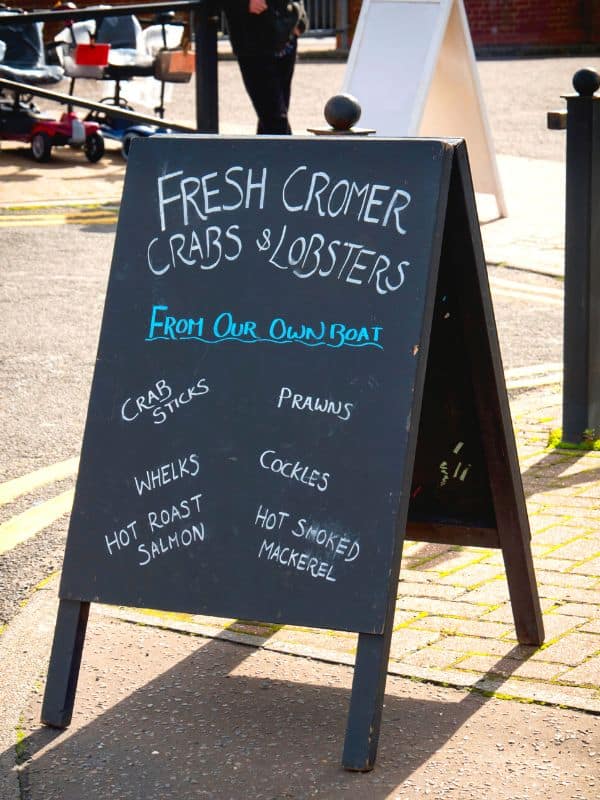 FRESH CROMER
CRABS & LOBSTERS
FROM OUR OWN BOAT
CRAB
STICKS
PRAWNS
WHELKS
COCKLES
HOT ROAST
SALMON
HOT SMOKED
MACKEREL